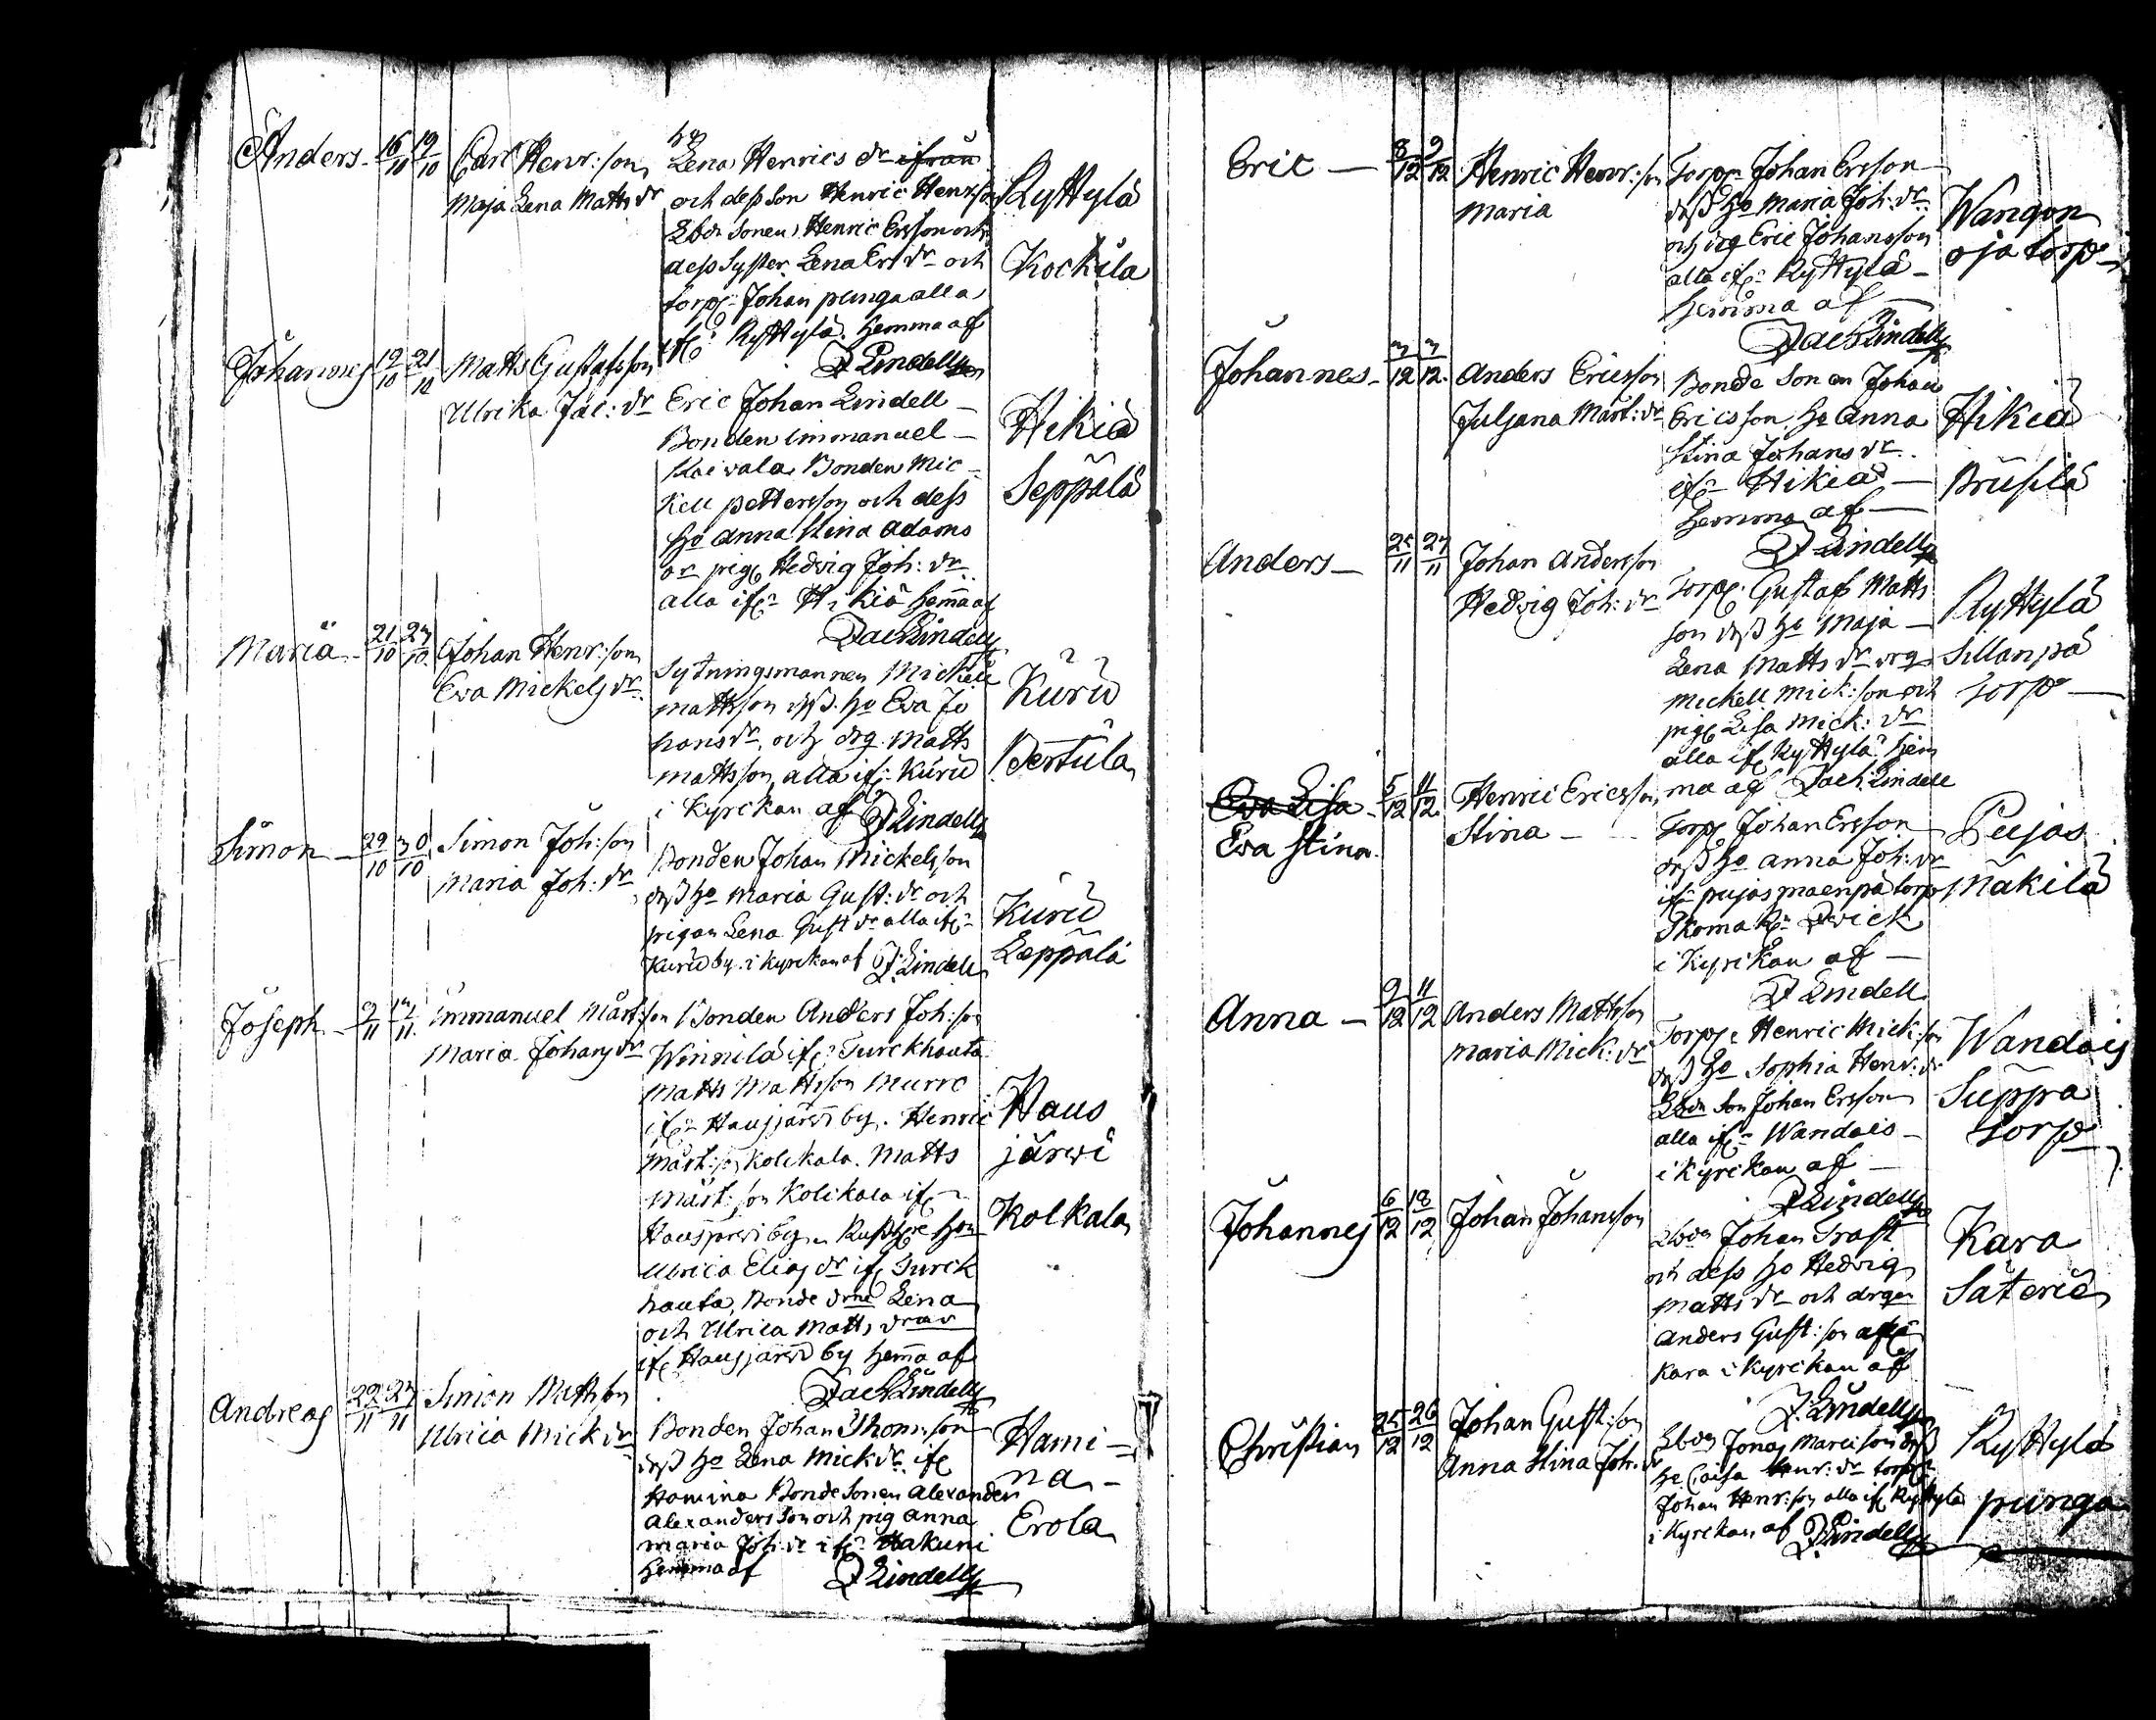 Anders - 16/10 19/10 Carl Henr:son
Maja Lena Matts dr
ho
Lena Henrics dr ifrån
och dess son Henric Henrsson
Sbdr sonen Henric Ersson och
dess Syster Lena Ers dr och
torp: Johan punga alla
ifr: Ryttylä. hemma af
J Lindell
Ryttylä
Kockila
Johannes 19/10 21/10 Matts Gustafsson
Ulrika Jac: dr
Eric Johan Lindell
Bonden immanuel
Kaivala Bonden Mic
kell pettersson och dess
ho anna Stina adams
dr pig Hedvig Joh: dr
alla ifr: Hikiä hemma af
Zach Lindell
Hikiä
Seppälä
Maria - 21/10 27/10 Johan Henr:son
Eva Mickels dr
Sytningsmannen Mickell
mattsson dess ho Eva Jo
hans dr, och drg Matts
mattsson, alla ifr: Kuru
i Kyrckan af J Lindell
Kuru
Bertula
Simon - 29/10 30/10 Simon Joh:son
Maria Joh: dr
Bonden Johan Mickelsson
dess ho Maria Gust: dr och
pigan Lena Gust dr alla ifr:
Kuru by i kyrckan af J: Lindell
Kuru
Leppälä
Joseph - 9/11 /11 immanuel Märt:son
Maria Johans dr
Bonden Anders Joh:son
Winnilä ifr: Turckhauta
Matts Mattsson Murro
ifr: Hausjärvi by. Henric
Märt:son Kolckala. Matts
Märt:son Kolckala ifr
Hausjärvi by hon
Ulrica Elias dr ifr Turck
hauta, Bonde drne Lena
och Ulrica Matts drar
ifr Hausjärvi by hemma af
Zach Lindell
Haus
järwi
Kolkala
Andreas 22/11 27/11 Simon Mattsson
Ulrica Mick dr
Bonden Johan Thom:son
dess ho Lena Mick dr ifr
Hamina Bonde Sonen Alexander
Alexandersson och pig Anna
maria Joh: dr ifr: Hakuni
hemma af J Lindell
Hami
na -
Erola
Eric - 8/12 9/12 Henric Henr:son
Maria
Torp: Johan Ersson
dess ho Maria Joh: dr
och drg Eric Johansson
alla ifr: Ryttylä -
hemma af -
Zach Lindell
Wangon
oja torp -
Johannes - 3/12 3/12 Anders Ericsson
Juliana Märt: dr
Bonde Sonen Johan
Ericsson ho Anna
Stina Johans dr
ifr: Hikiä -
hemma af -
J Lindell
Hikiä
Anders - 25/11 27/11 Johan Andersson
Hedvig Joh: dr
Torp: Gustaf Matts
son dess ho Maja -
Lena Matts dr drg
Mickell Mick:son och
pig Lisa Mick: dr
alla ifr Ryttylä hem
ma af Zach: Lindell
Ryttylä
Sillanpä
torp -
Eva Lisa - 5/12 11/12 Henric Ericsson
Eva Stina. Stina -
Torp Johan Ersson
dess ho anna Joh: dr
ifr pujas maenpä torp
i Kyrckan af -
J Lindell
Pujas
Mäkilä
Anna - 9/12 11/12 Anders Mattsson
Maria Mick: dr
Torp: Henric Mick:son
dess ho Sophia Henr: dr
Sbdr Son Johan Ersson
alla ifr: Wandais -
i Kyrckan af -
J Lindell
Wandais
Suppra
torp
Johannes 6/12 18/12 Johan Johansson
Sbdr Johan Trast
och dess ho Hedvig
Matts dr och drgen
Anders Gust:son
Kara i Kyrckan af
J. Lindell
Kara
Säteriё
Christian 25/12 26/12 Johan Gust:son
Anna Stina Joh: dr
Sbdr Jonas Marcisson dess
ho Caisa Henr: dr torp:
Johan Henr:son alla ifr Ryttylä
i Kyrckan af J Lindell
Ryttylä
punga